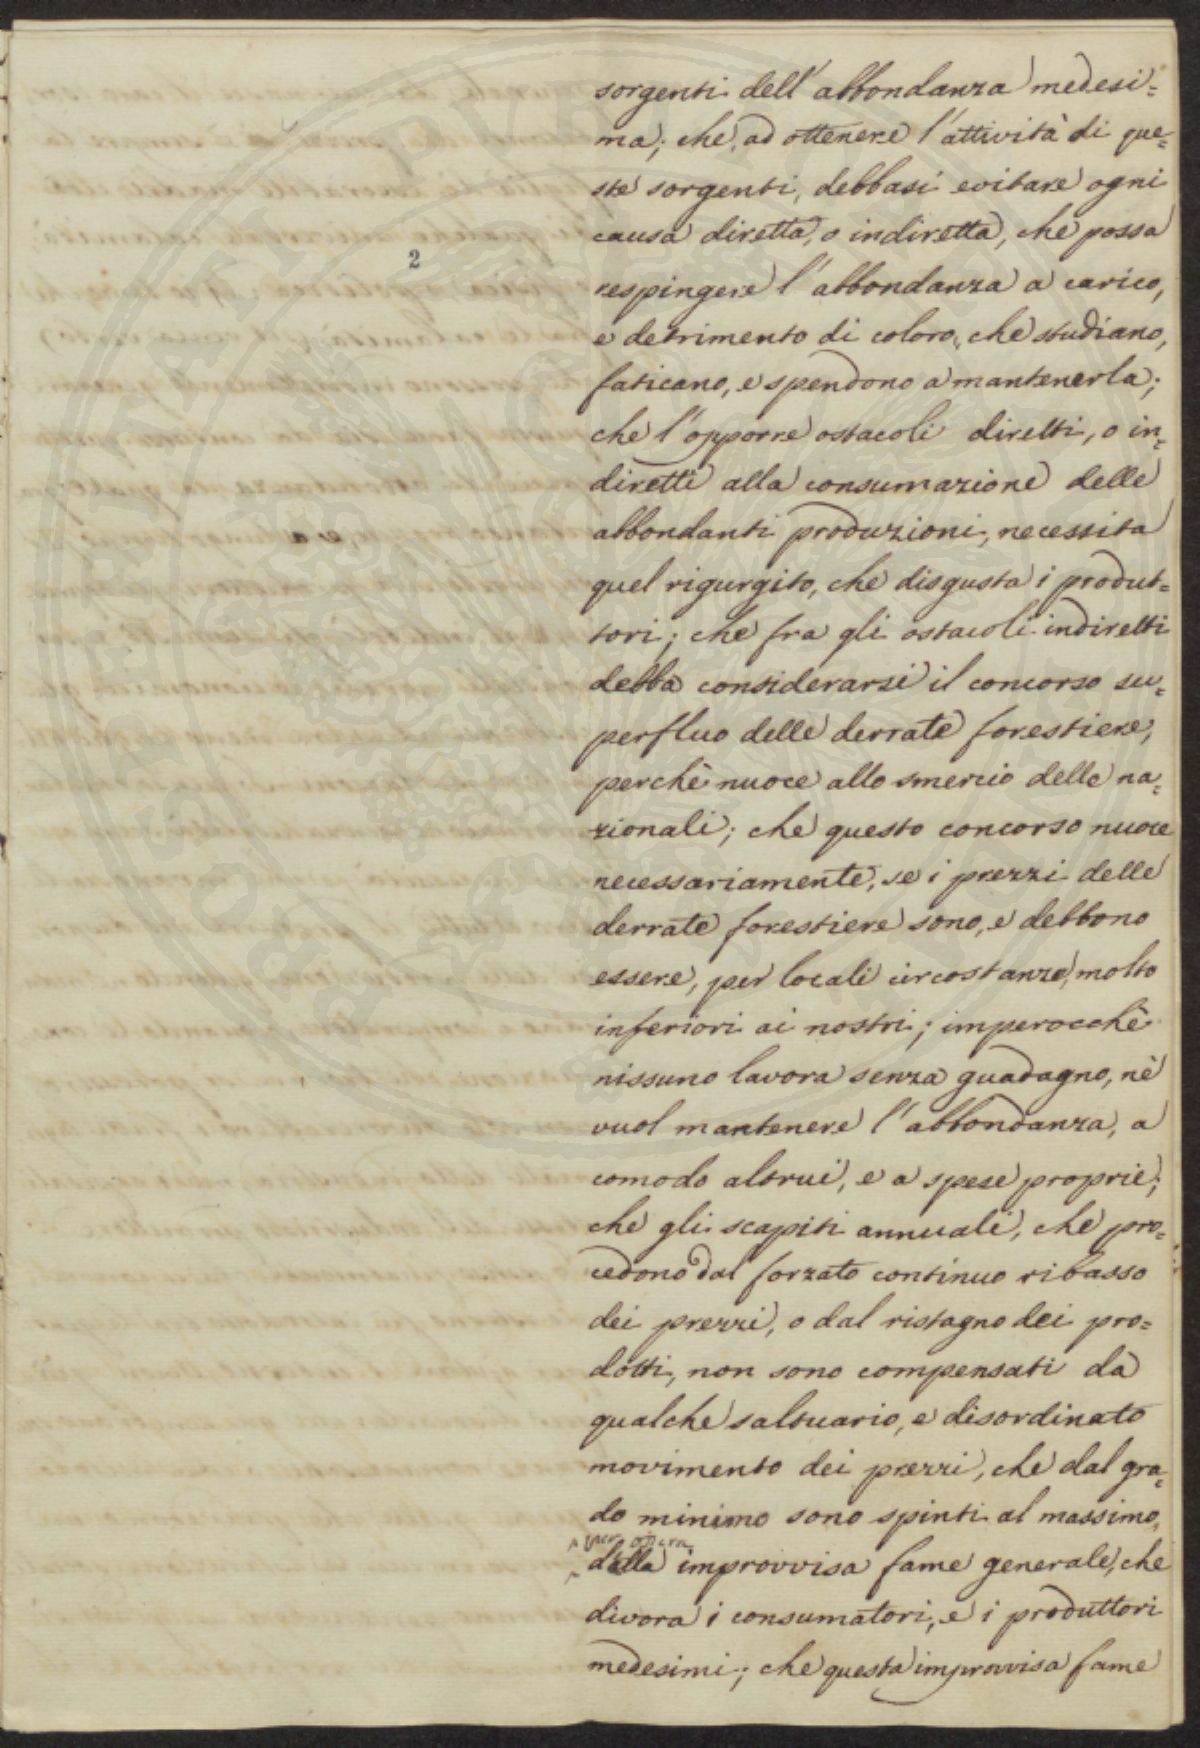 sorgenti dell'abbondanza medesi=
ma; che, ad ottenere l'attività di que=
ste sorgenti, debbasi evitare ogni
causa diretta, o indiretta, che possa
2
respingere l'abbondanza a carico,
e detrimento di coloro, che studiano,
faticano, e spendono a mantenerla;
che l'opporre ostacoli diretti, o in=
diretti alla consumazione delle
abbondanti produzioni, necessita
quel rigurgito, che disgusta i produt=
tori; che fra gli ostacoli indiretti
debba considerarsi il concorso su=
perfluo delle derrate forestiere,
perchè nuoce allo smercio delle na=
zionali; che questo concorso nuoce
necessariamente, se i prezzi delle
derrate forestiere sono, e debbono
essere, per locali circostanze, molto
inferiori ai nostri; imperocchè
nissuno lavora senza guadagno, nè
vuol mantenere l'abbondanza, a
comodo altrui, e a spese proprie;
che gli scapiti annuali, che pro=
cedono dal forzato continuo ribasso
dei prezzi, o dal ristagno dei pro=
dotti, non sono compensati da
qualche saltuario, e disordinato
movimento dei prezzi, che dal gra=
do minimo sono spinti al massimo,
per opera
della improvvisa fame generale, che
divora i consumatori, e i produttori
medesimi; che questa improvvisa fame